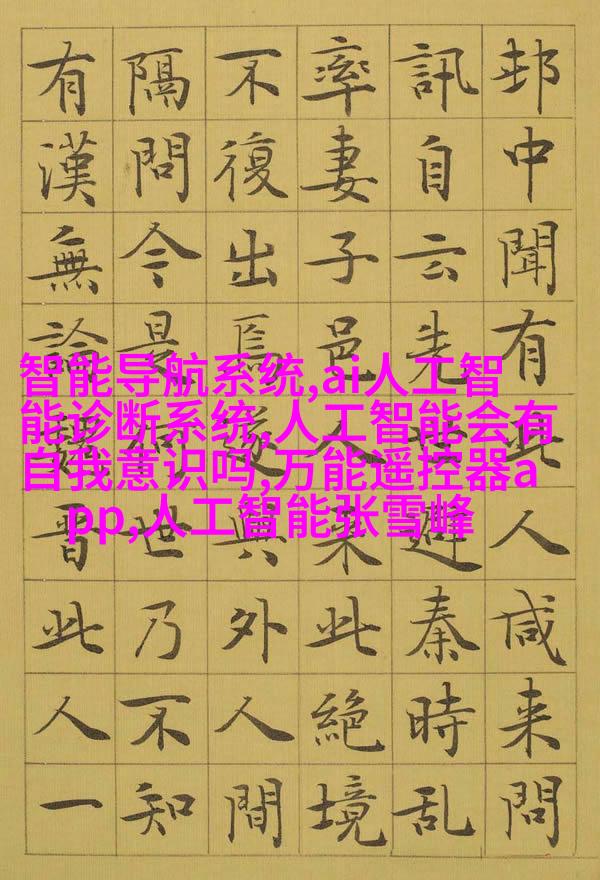 邨中聞有此人咸来問
訊自云先世避秦時乱
率妻子邑人来此絶境
不復出焉遂與外人間
隔問今是何世乃不知
有漢無論魏晋此人一
智能导航系统,ai人工智
能诊断系统,人工智能会有
自我意识吗,万能遥控器a
pp,人工智能张雪峰